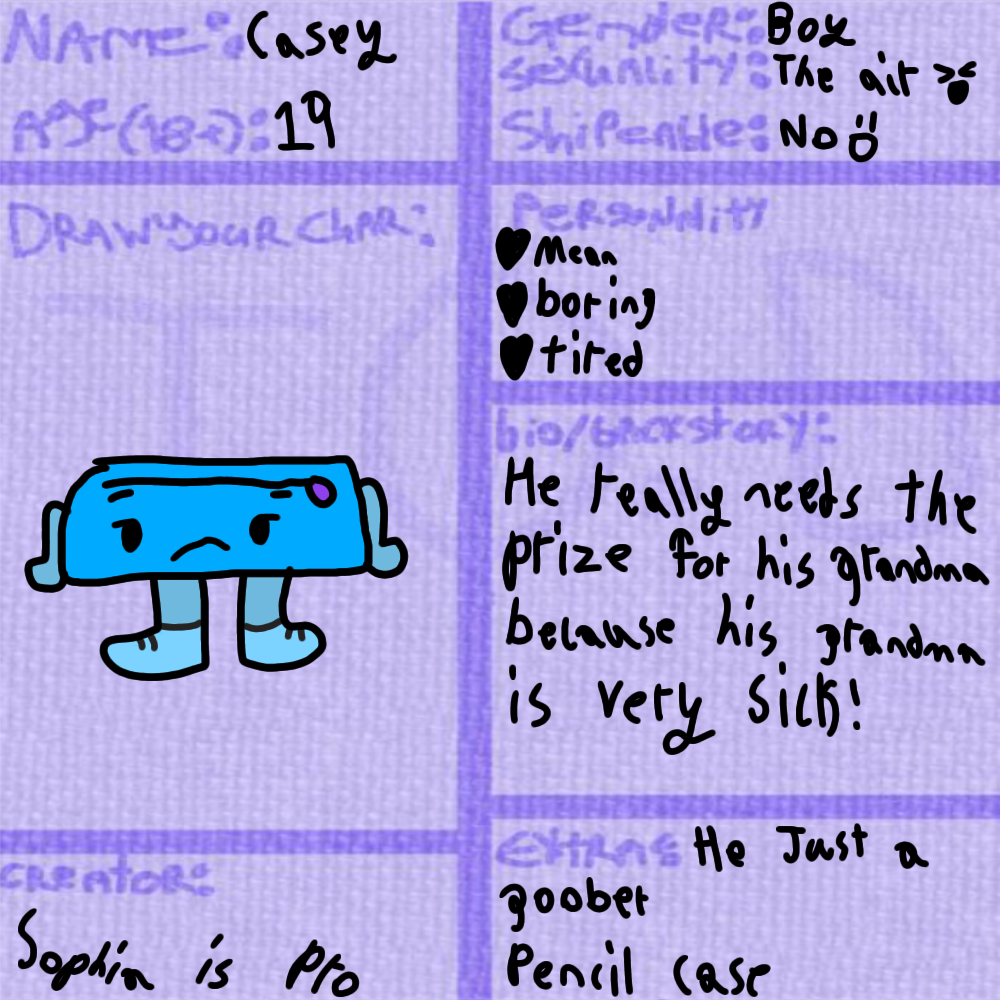 NAME: Casey
AGE (18+): 19
Gender: Boy
sexuality: The air
Shipenble: No
DRAW your CHAR:
Personnlity
Mean
boring
tired
bio/backstory:
He really needs the
prize for his grandma
because his grandma
is very sick!
creator:
Sophia is pro
Extras: He Just a
goober
Pencil case